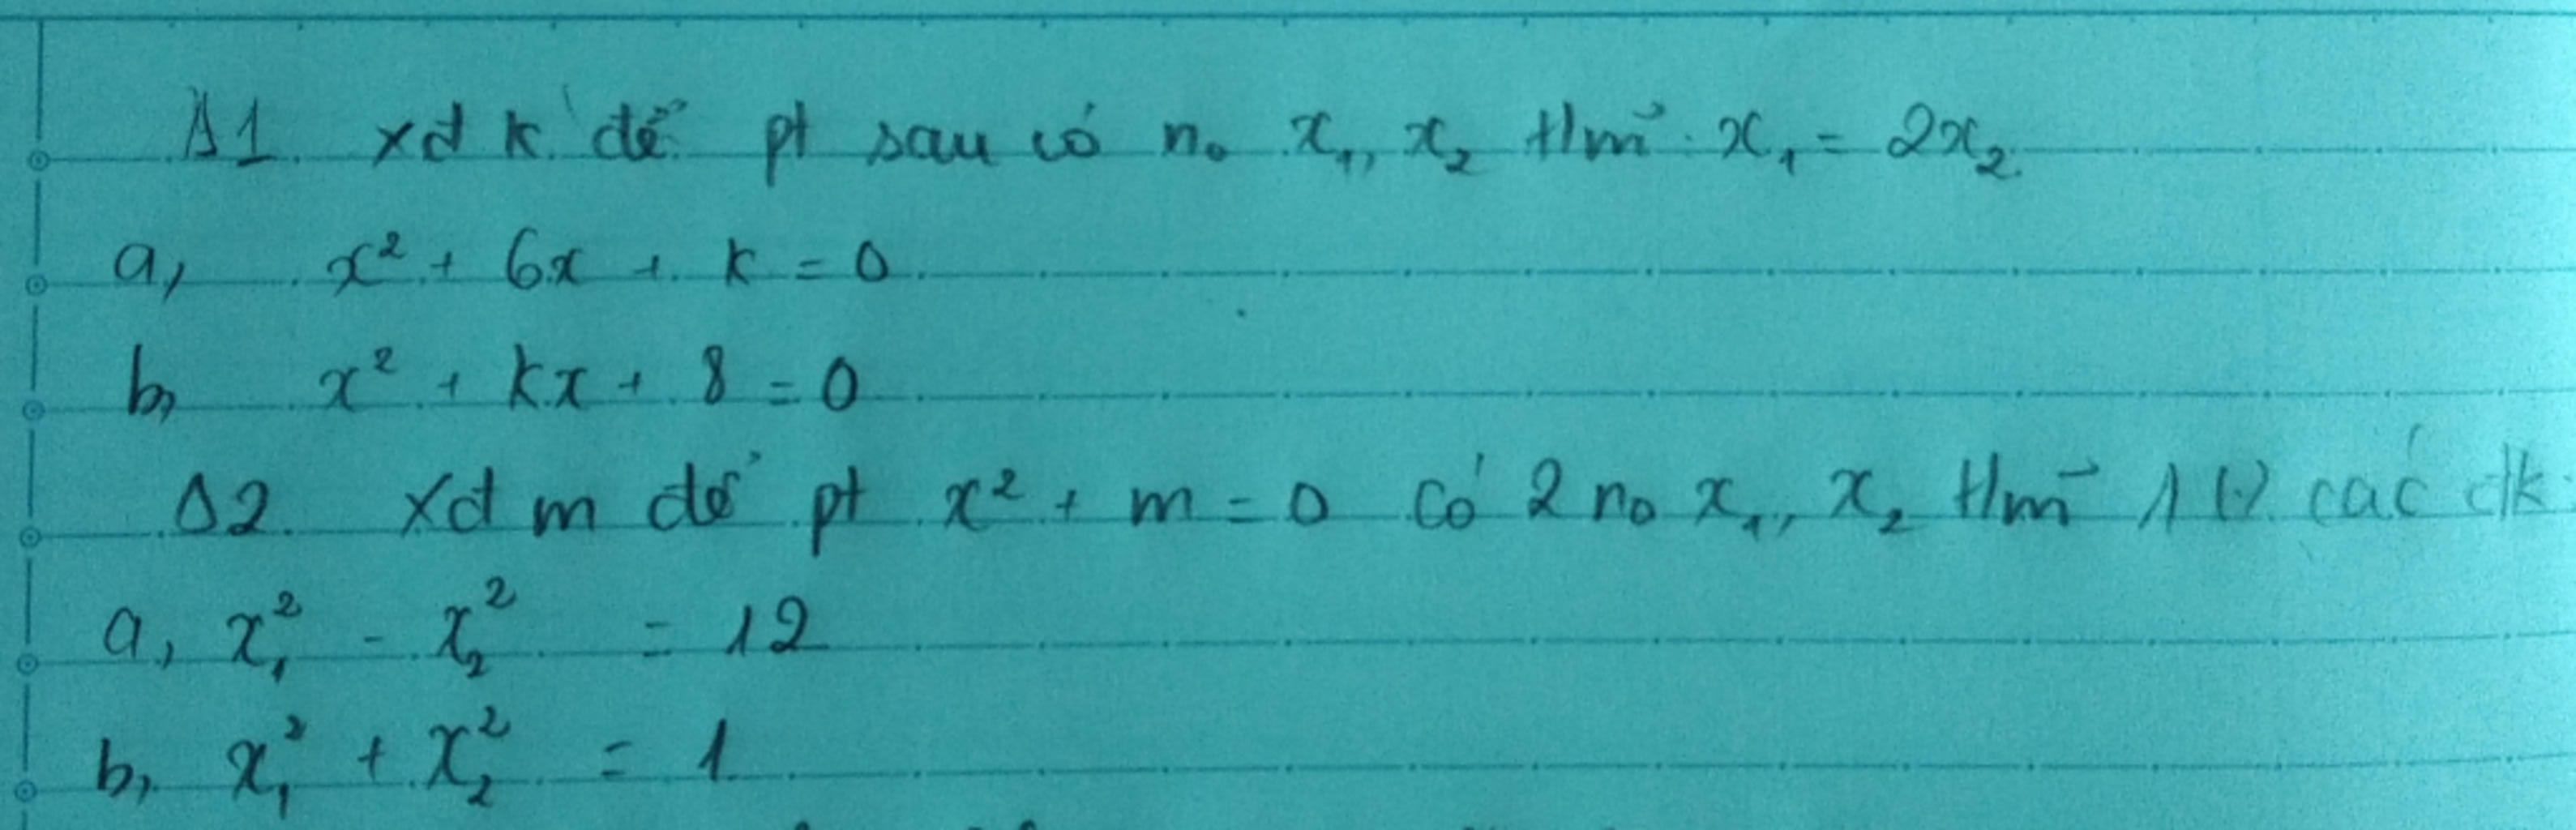 Δ1. xđ k để pt sau có no x₁, x₂ t/m x₁ = 2x₂
a, x² + 6x + k = 0
b, x² + kx + 8 = 0
Δ2. xđ m để pt x² + m = 0 có 2 no x₁, x₂ t/m 1 các đk
a, x₁² - x₂² = 12
b, x₁² + x₂² = 1